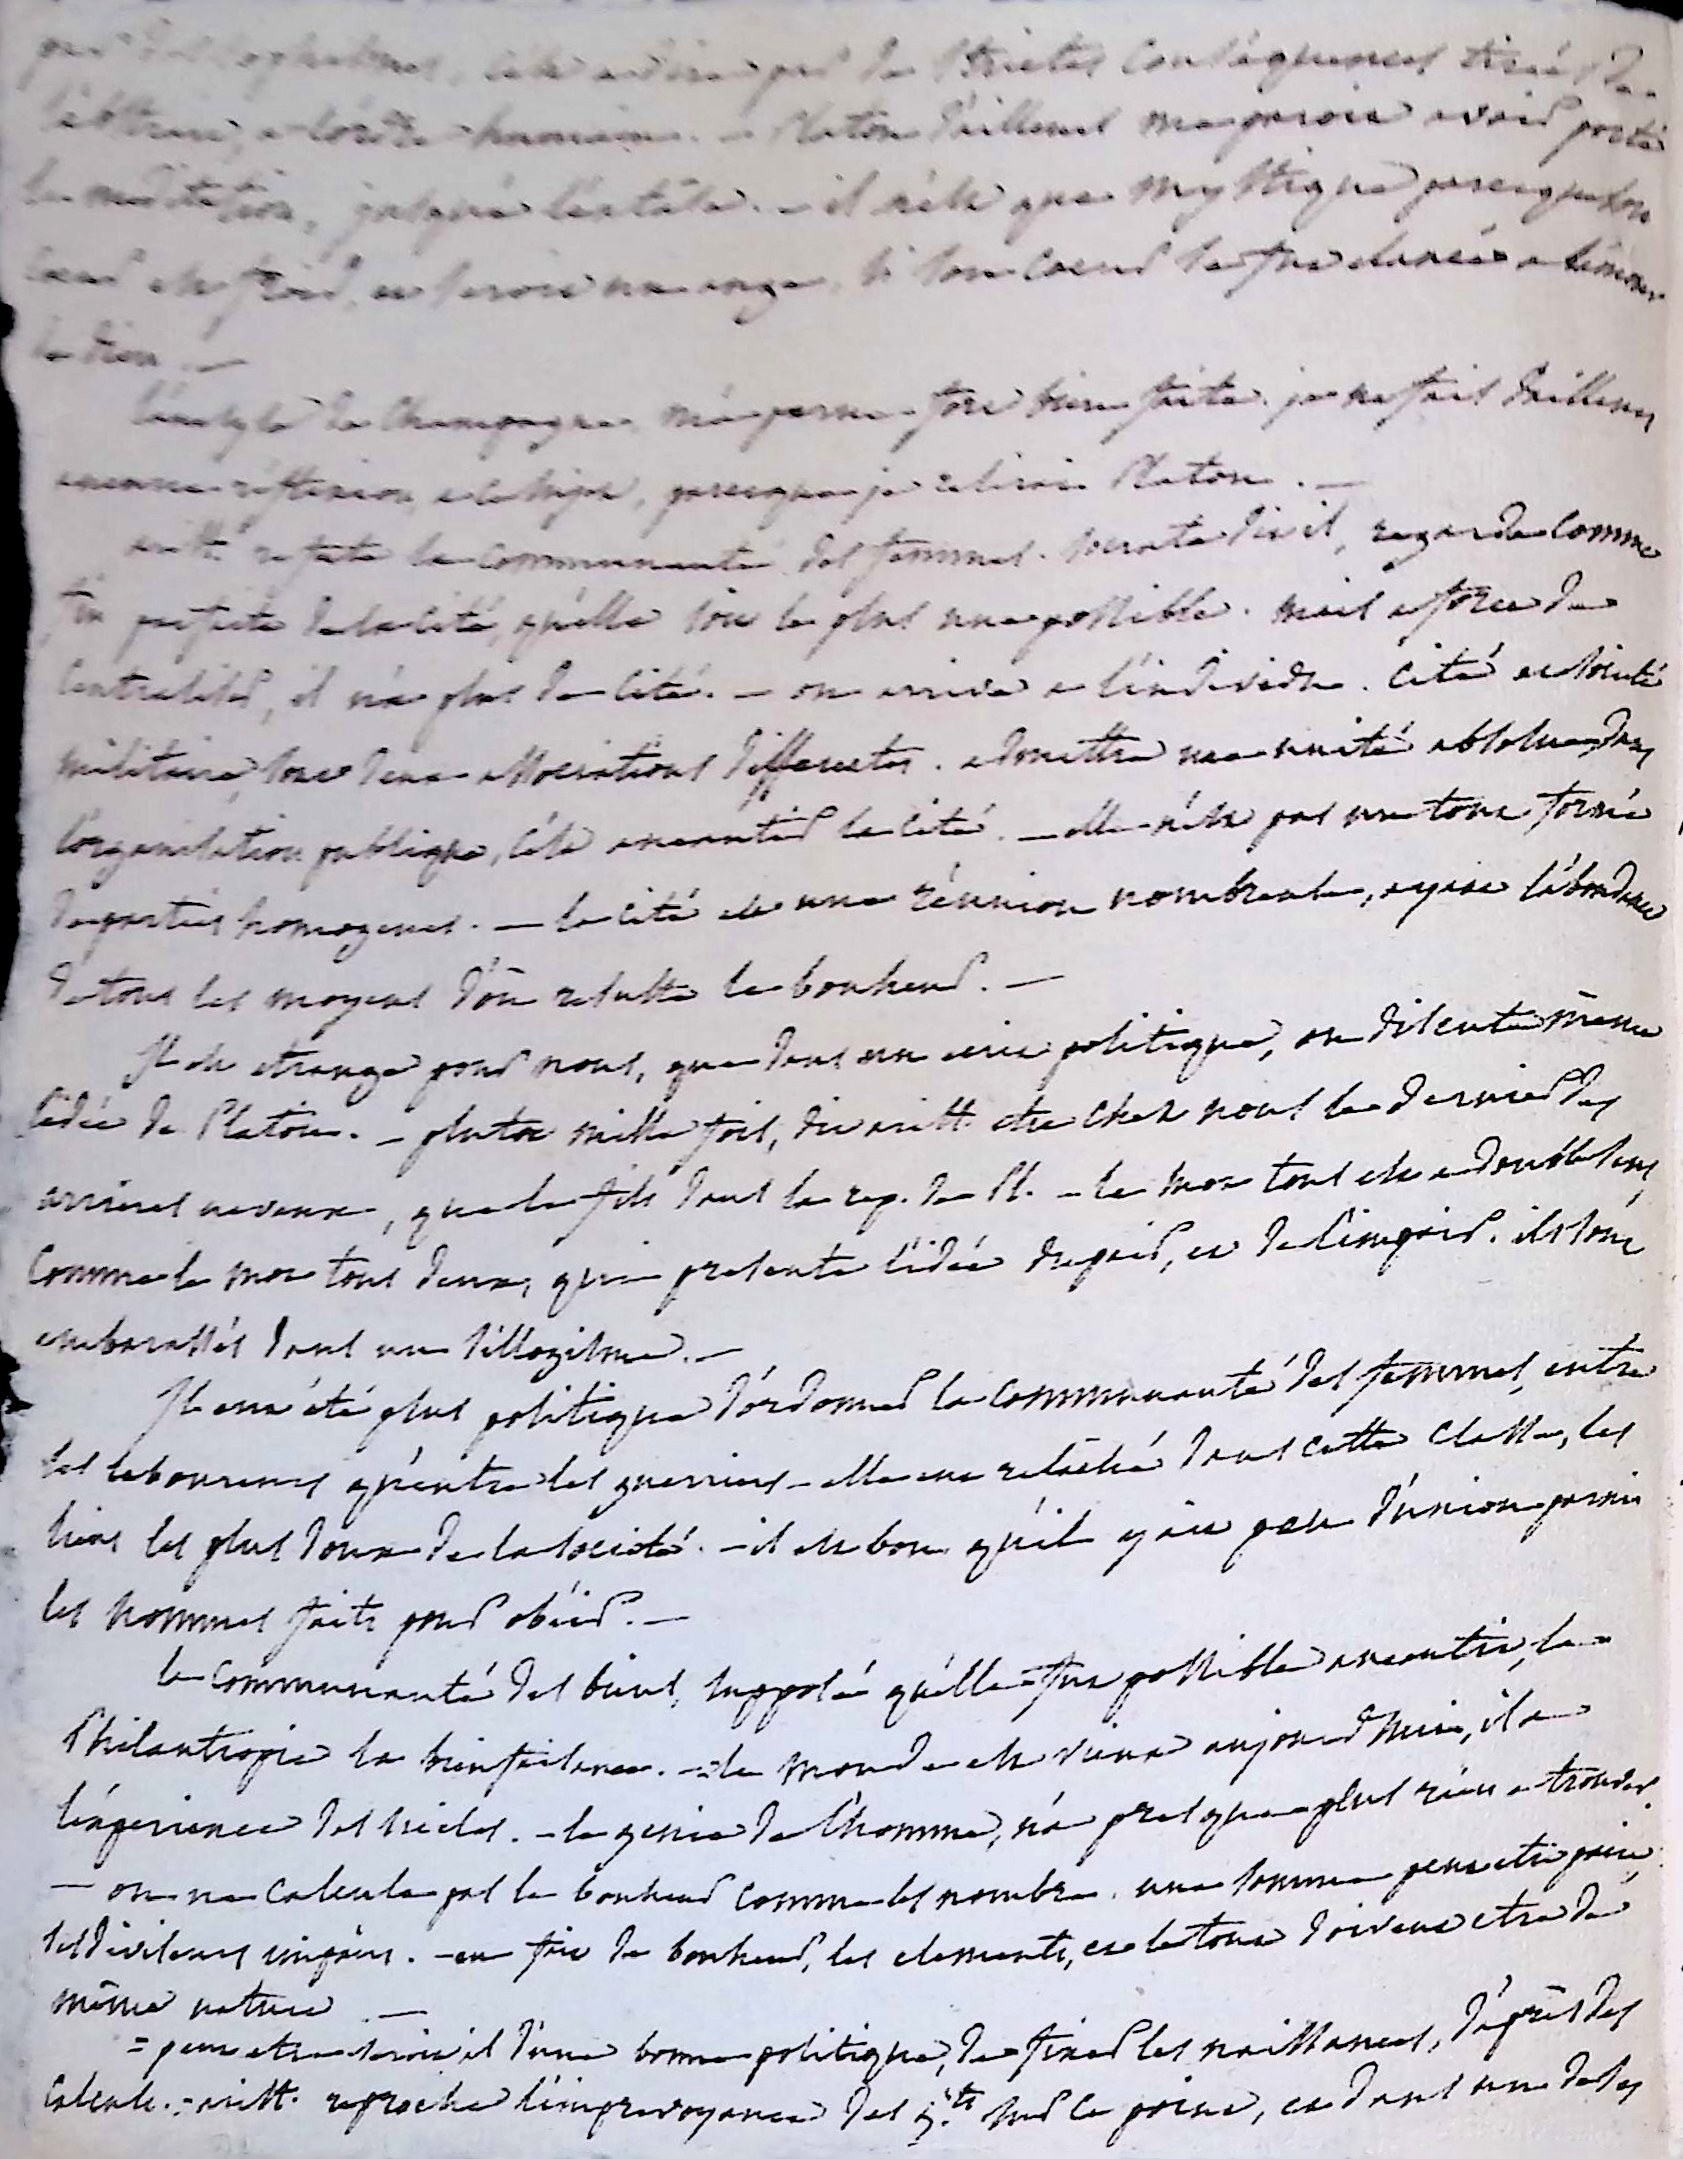 par des sophismes, c'est a dire par de strictes conséquences tirées de
l'abstrait, a l'ordre humain. - Platon d'ailleurs me parois avoir porté
la méditation, jusqu'a l'extase. - il n'est que mystique parceque son
coeur est froid, ce serois un ange, si son coeur se fut élancé a aimer
le dieu. —
l'analyse de Champagne, m'a parue fort bien faite. je ne fais d'ailleurs
aucune réflexion, a ce sujet, parceque je relirai Platon. —
arist. refute la communauté des femmes. socrate dit il, regarde comme
fin parfaite de la cité, qu'elle soit le plus une possible. mais a force de
centraliser, il n'a plus de cité. - on arrive a l'individu. Cité et société
militaire, sont deux associations differentes. admettre une unité absolue dans
l'organisation publique, c'est aneantir la cité. — elle n'est pas un tout formé
de parties homogenes. — la cité est une réunion nombreuse, ayant l'abondance
de tous les moyens d'où resulte le bonheur. —
Il est etrange pour nous, que dans un écrit politique, on discute même
l'idée de Platon. - plutot mille fois, dit arist. etre chez nous le dernier des
arrieres neveux, que le fils dans la rep. de Pl. - le mot tous est a double sens,
comme le mot tous deux, qui presente l'idée du pair, et de l'impair. ils sont
embarassés dans un sillogisme. —
Il eut été plus politique d'ordonner la communauté des femmes, entre
les laboureurs qu'entre les guerriers - elle eut relaché dans cette classe, les
liens les plus doux de la société. - il est bon qu'il y ait peu d'union parmi
les hommes faits pour obéir. —
la communauté des biens, supposé qu'elle fut possible aneantit, la
Philantropie la bienfaisance. - le monde est vieux aujourd'hui, il a
l'experience des siecles. - le genie de l'homme, n'a presque plus rien a trouver.
— on ne calcule pas le bonheur comme les nombres. une somme peut etre paire,
ses diviseurs impairs. - en fait de bonheur, les elements, et le tout doivent etre de
même nature. —
= peut etre serait il d'une bonne politique, de fixer les naissances, d'après des
calculs. = arist. reproche l'imprevoyance des sur ce point, et dans un de ses